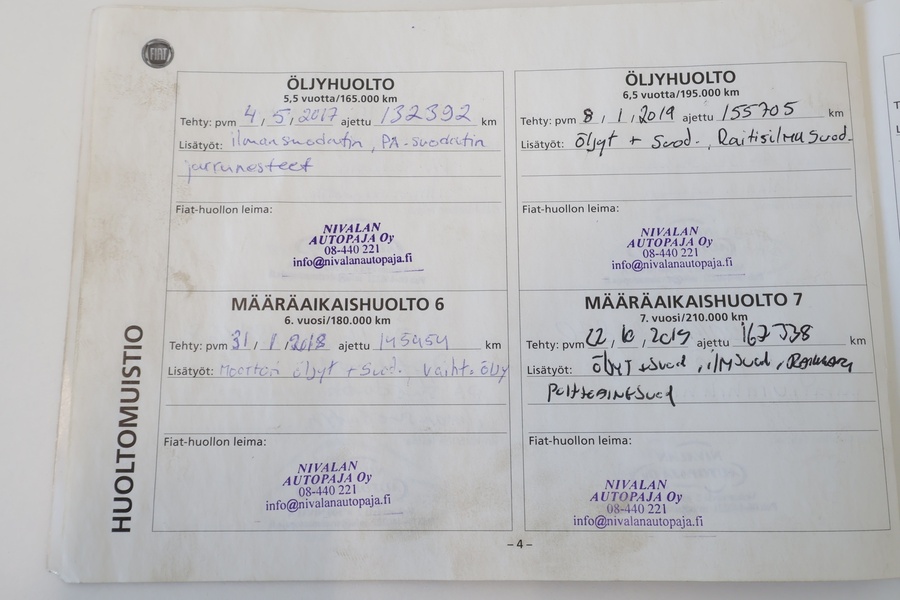 FIAT
HUOLTOMUISTIO
ÖLJYHUOLTO
5,5 vuotta/165.000 km
Tehty: pvm 4, 5, 2017 ajettu 132392 km
Lisätyöt: ilmansuodatin, PA-suodatin
jarrunesteet
Fiat-huollon leima:
NIVALAN
AUTOPAJA Oy
08-440 221
info@nivalanautopaja.fi
ÖLJYHUOLTO
6,5 vuotta/195.000 km
Tehty: pvm 8, 1, 2019 ajettu 155705 km
Lisätyöt: Öljyt + Suod., Raitisilma Suod.
Fiat-huollon leima:
NIVALAN
AUTOPAJA Oy
08-440 221
info@nivalanautopaja.fi
MÄÄRÄAIKAISHUOLTO 6
6. vuosi/180.000 km
Tehty: pvm 31, 1, 2018 ajettu 145454 km
Lisätyöt: Moottori öljyt + Suod., Vaiht. öljy
Fiat-huollon leima:
NIVALAN
AUTOPAJA Oy
08-440 221
info@nivalanautopaja.fi
MÄÄRÄAIKAISHUOLTO 7
7. vuosi/210.000 km
Tehty: pvm 22, 10, 2019 ajettu km
Lisätyöt: ÖljyT + Suod, ilMSuod,
PolttoaineSuod
Fiat-huollon leima:
NIVALAN
AUTOPAJA Oy
08-440 221
info@nivalanautopaja.fi
– 4 –